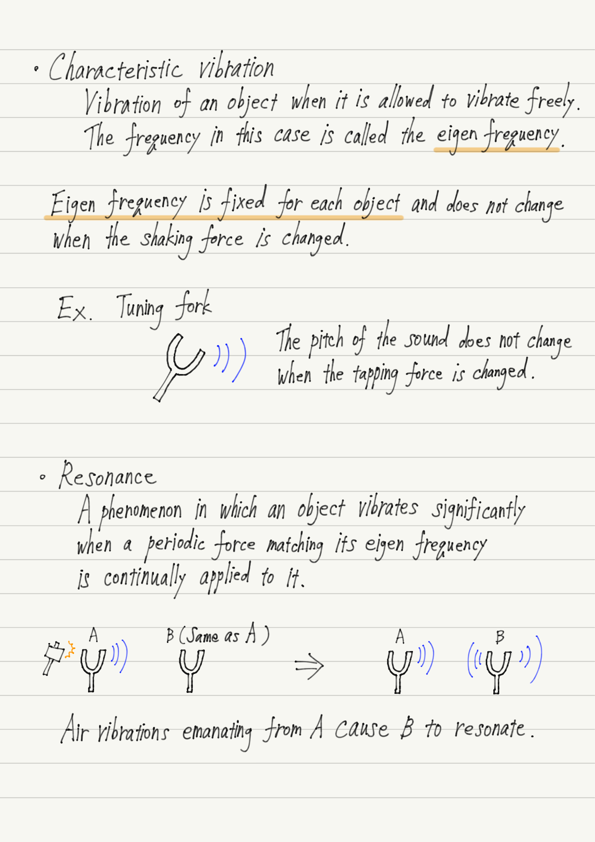 • Characteristic vibration
Vibration of an object when it is allowed to vibrate freely.
The frequency in this case is called the eigen frequency.
Eigen frequency is fixed for each object and does not change
when the shaking force is changed.
Ex. Tuning fork
The pitch of the sound does not change
when the tapping force is changed.
• Resonance
A phenomenon in which an object vibrates significantly
when a periodic force matching its eigen frequency
is continually applied to it.
A B (Same as A) ⇒ A B
Air vibrations emanating from A cause B to resonate.